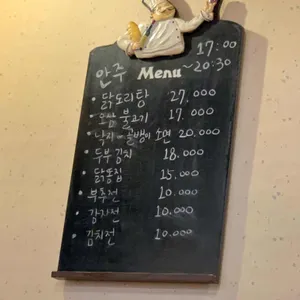 17:00
~20:30
안주 Menu
• 닭도리탕 27,000
• 오삼불고기 17,000
• 낙지·골뱅이소면 20.000
• 두부김치 18.000
• 닭똥집 15.000
• 부추전 10.000
• 감자전 10.000
• 김치전 10.000